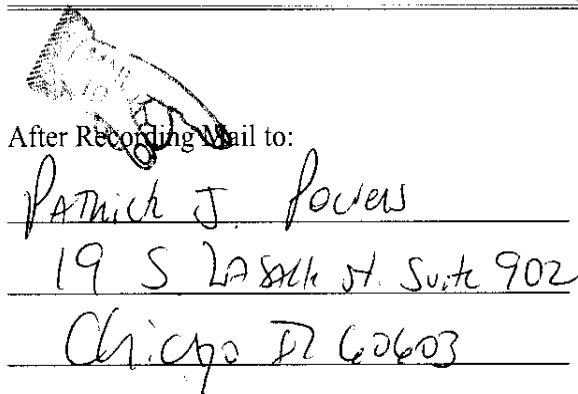 After Recording Mail to:
Patrick J. Powers
19 S LaSalle St. Suite 902
Chicago IL 60603